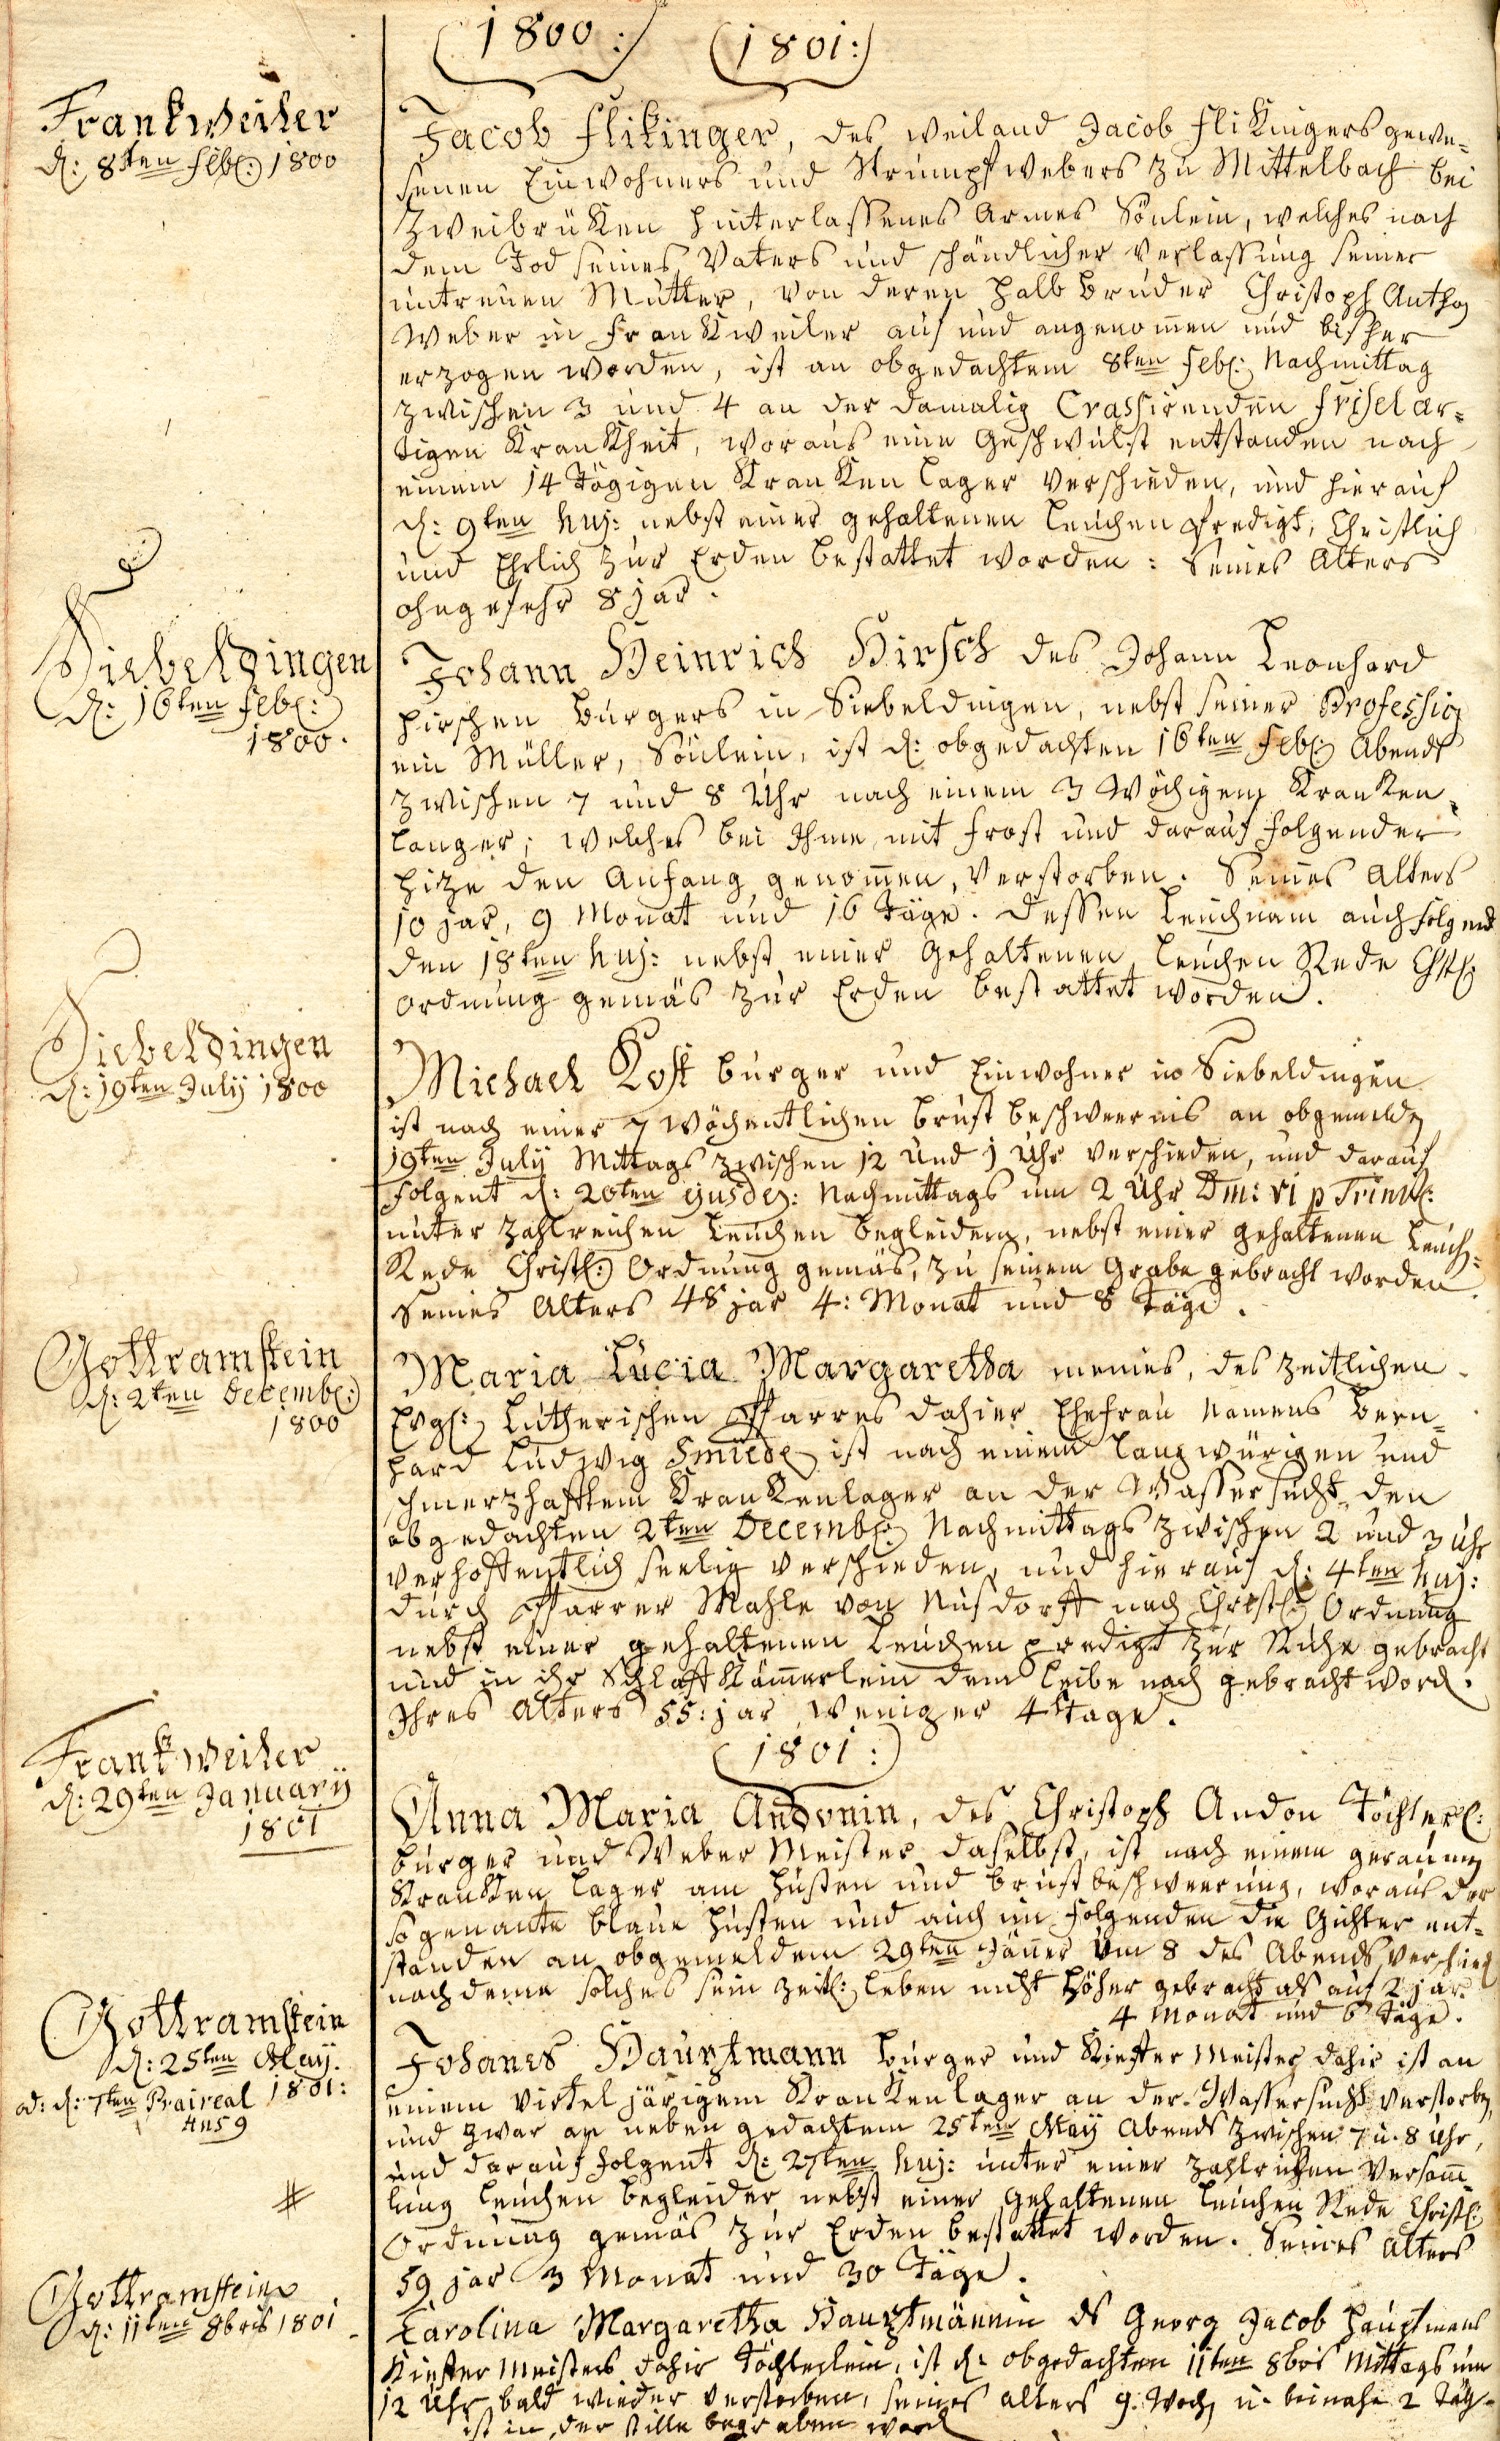 (1800:) (1801:)
Frankweiler
d: 8ten Feb: 1800
Jacob Flikinger, des weiland Jacob Flikingers gewe=
senen Einwohners und Strumpfwebers zu Mittelbach bei
Zweibrüken hinterlassenes armes Sönlein, welches nach
dem Tod seines Vaters und schändlicher Verlassung seiner
untreuen Mutter, von deren halb Bruder Christoph Anthon
Weber in Frankweiler auf und angenomen und bisher
erzogen worden, ist an obgedachtem 8ten Feb: Nachmittag
zwischen 3 und 4 an der damalig Crassirenden friselar=
tigen Krankheit, woraus eine Geschwulst entstanden nach
einem 14 Tägigen Kranken Lager verschieden, und hierauf
d: 9ten huj: nebst einer gehaltenen Leichen Predigt, Christlich
und Ehrlich zur Erden bestattet worden: Seines Alters
ohngefehr 8 jar.
Siebeldingen
d: 16ten Feb:
1800.
Johann Heinrich Hirsch des Johann Leonhard
Hirschen Burgers in Siebeldingen, nebst seiner Profession
ein Müller, Sönlein, ist d: obgedachten 16ten Feb: Abends
zwischen 7 und 8 Uhr nach einem 3 Wöchigem Kranken
Langer; welches bei Ihme mit Frost und darauf folgender
Hize den Anfang genomen, verstorben. Seines Alters
10 jar, 9 Monat und 16 Täge. Dessen Leuchnam auch folgend
den 18ten huj: nebst einer gehaltenen Leuchen Rede Chstl:
Ordnung gemäs zur Erden bestattet worden.
Siebeldingen
d: 19ten July 1800
Michael Kost burger und Einwohner in Siebeldingen
ist nach einer 7 wöchentlichen Brust beschweernis an obgemeldten
19ten July Mittags zwischen 12 und 1 Uhr verschieden, und darauf
folgent d: 20ten ejusdem: Nachmittags um 2 Uhr Dm: VI p Trinit:
unter zahlreichen Leuchen begleidern, nebst einer gehaltenen Leuch=
Rede Christl: Ordnung gemäs, zu seinem Grabe gebracht worden.
Seines Alters 48 jar 4: Monat und 8 Täge.
Gottramstein
d: 2ten Decemb:
1800
Maria Lucia Margaretha meines, des zeitlichen
Evgl: Lutherischen Pfarres dahier Ehefrau Namens Bern=
hard Ludwig Smiede ist nach einem langwürigen und
schmerzhafftem Krankenlager an der Wassersucht den
obgedachten 2ten Decemb: Nachmittags zwischen 2 und 3 Uhr
verhoffentlich seelig verschieden, und hierauf d: 4ten huj:
durch Pfarrer Mahle von Nusdorff nach Christl: Ordnung
nebst einer gehaltenen Leuchen predigt zur Ruhe gebracht
und in ihr Schlaff Kämerlein dem Leibe nach gebracht word.
Ihres Alters 55: jar weniger 4 Tage.
(1801:)
Frankweiler
d: 29ten January
1801
Anna Maria Andonin, des Christoph Andon Töchterl:
burger und Weber Meister daselbst, ist nach einem geraumen
Kranken Lager am Husten und brustbeschweerung, woraus der
so genante blaue Husten und auch im folgenden die Gichter ent=
standen an obgemeldem 29ten Jäner um 8 des Abends verschied
nach deme solches sein zeitl: Leben nicht höher gebracht als auf 2 jar.
4 Monat und 6 Täge.
Gottramstein
d: 25ten May.
1801:
od: d: 7ten Praireal
Ans 9
Johanes Hauptmann burger und Kieffer Meister dahir ist an
einem virtel järigem Krankenlager an der Wassersucht verstorben,
und zwar an neben gedachtem 25ten May Abends zwischen 7 u. 8 Uhr,
und darauf folgent d: 27ten huj: unter einer zahlreichen Versamm=
lung Leuchen begleider nebst einer gehaltenen Leuchen Rede Christl:
Ordnung gemäs zur Erden bestattet worden. Seines Alters
59 jar 3 Monat und 30 Täge.
#
Gottramstein
d: 11ten 8bris 1801
Carolina Margaretha Hauptmännin ds Georg Jacob Hauptmans
Kieffer Meisters dahir Töchterlein, ist d: obgedachten 11ten 8bris Mittags um
12 Uhr bald wieder verstorben, seines alters 9. Woch u. beinahe 2 Täg.
ist in der stille begraben word